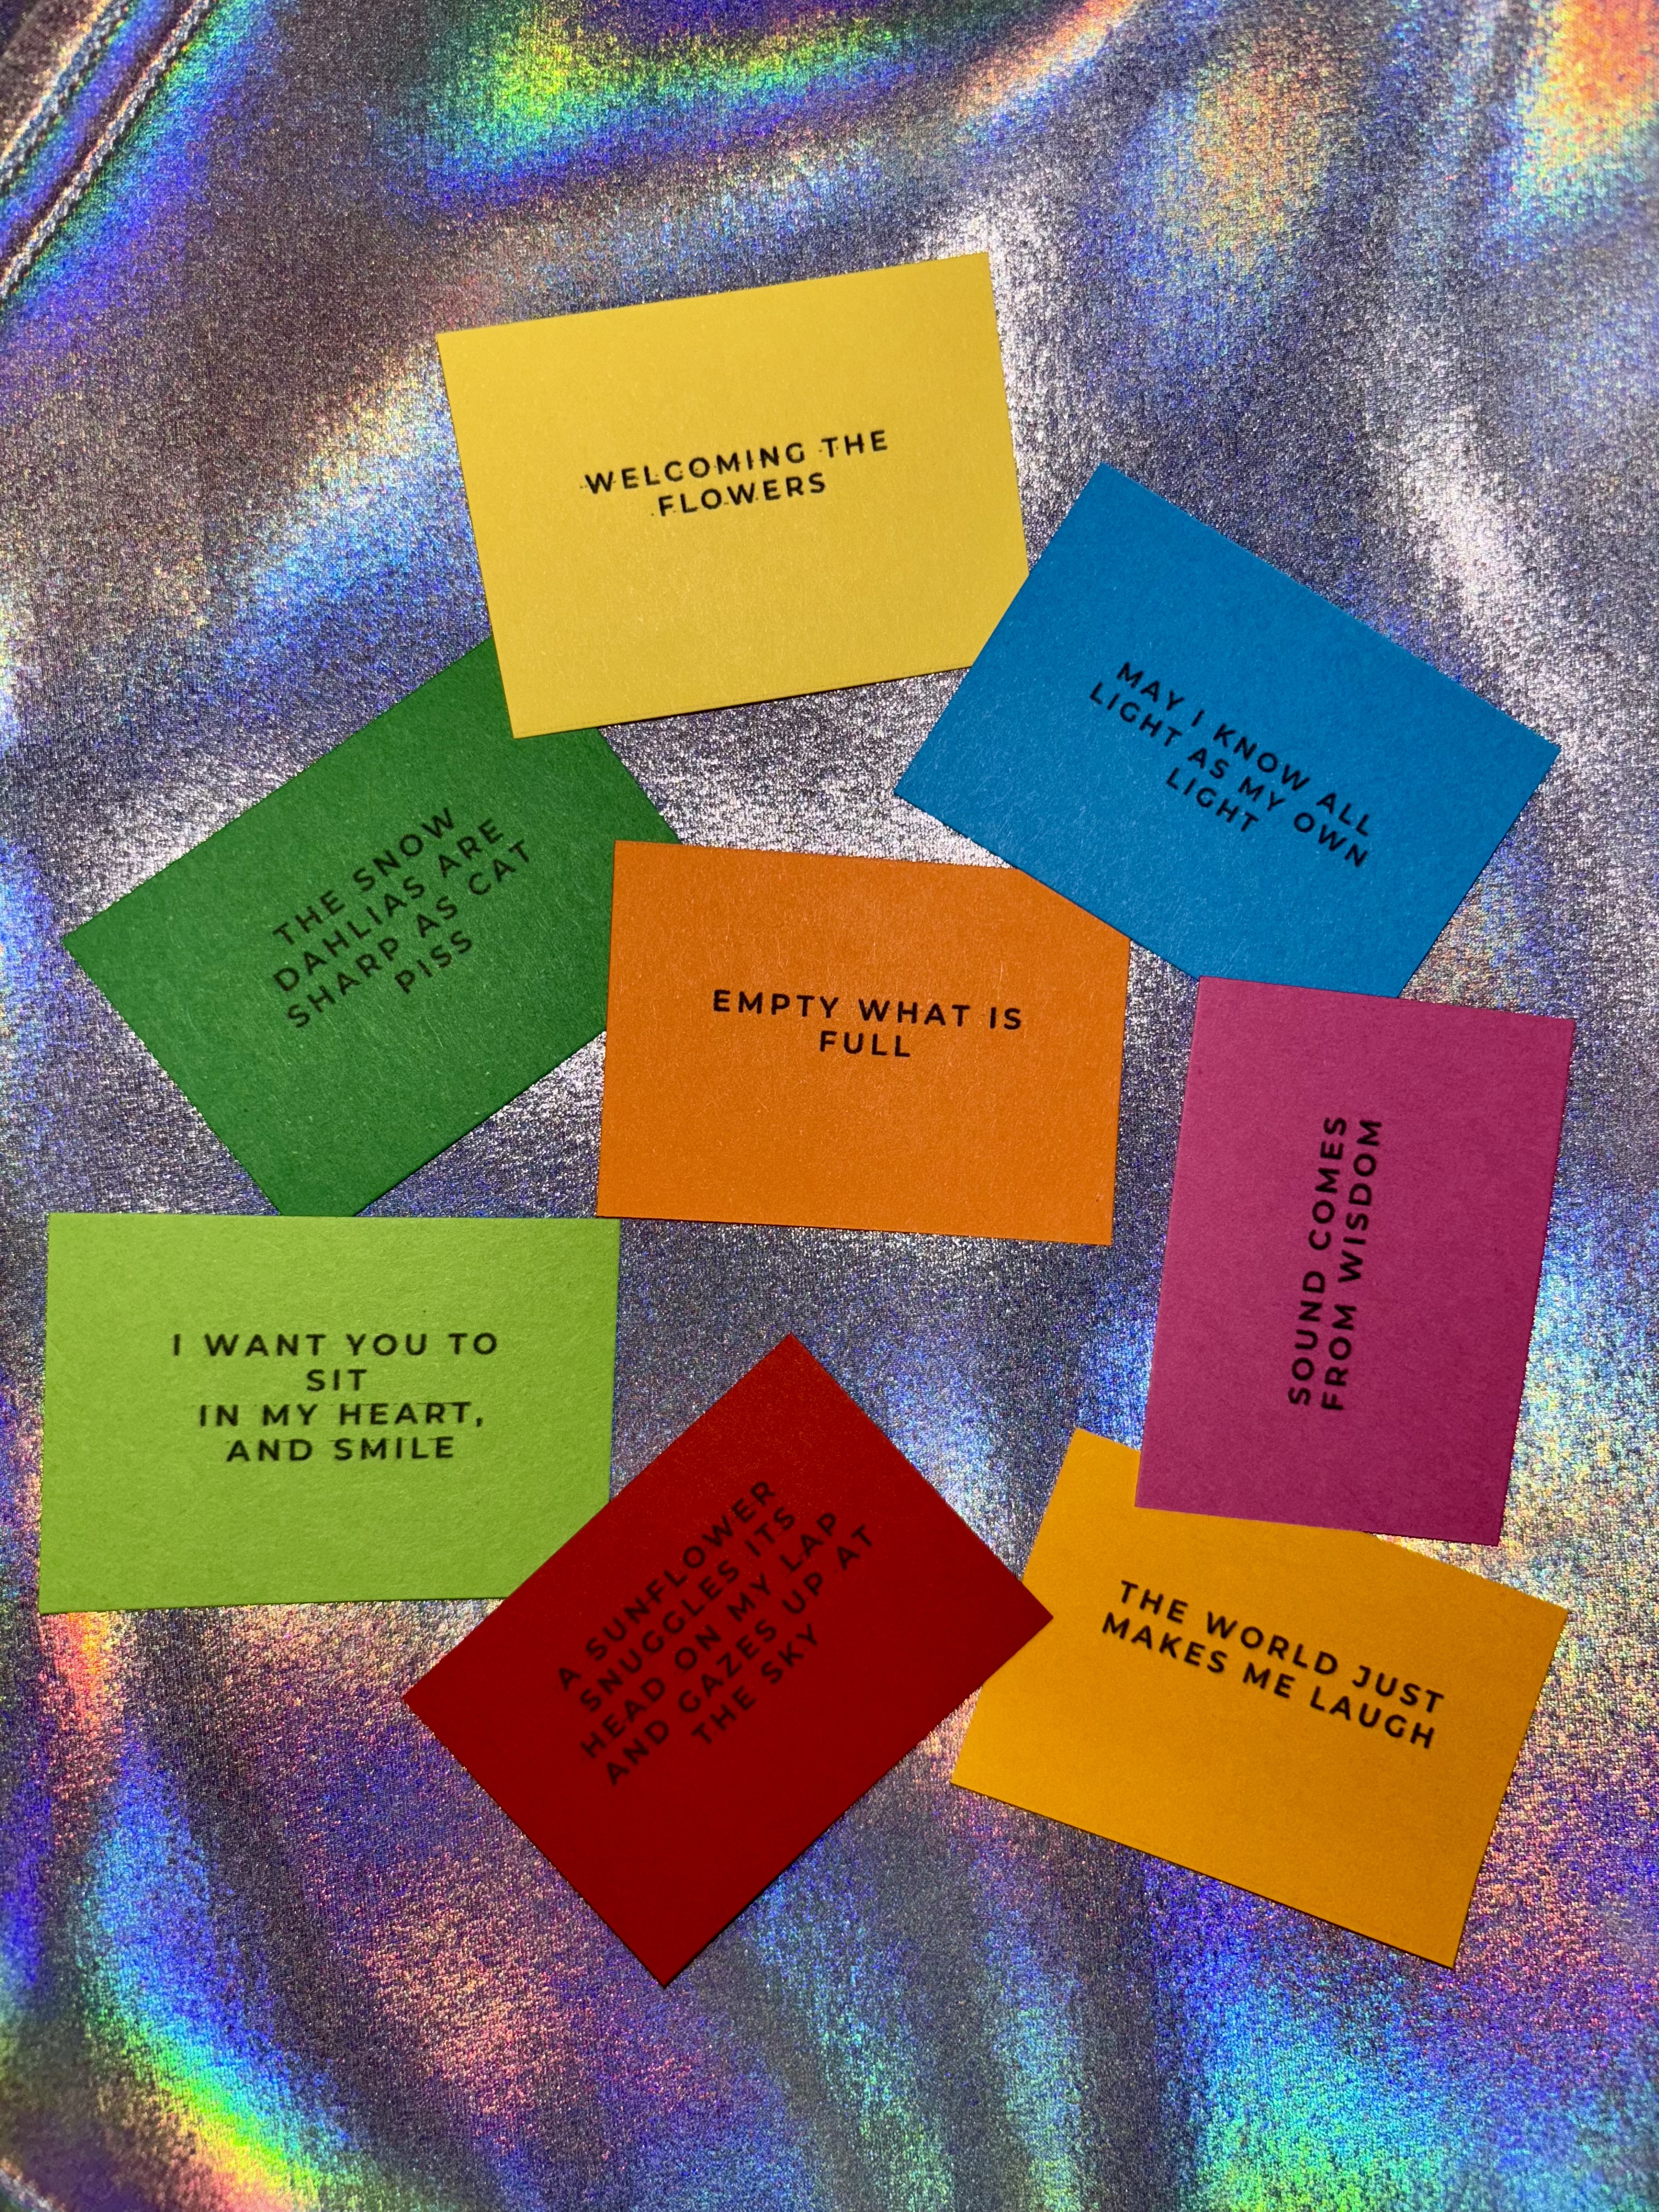 WELCOMING THE
FLOWERS
MAY I KNOW ALL
LIGHT AS MY OWN
LIGHT
THE SNOW
DAHLIAS ARE
SHARP AS CAT
PISS
EMPTY WHAT IS
FULL
SOUND COMES
FROM WISDOM
I WANT YOU TO
SIT
IN MY HEART,
AND SMILE
A SUNFLOWER
SNUGGLES ITS
HEAD ON MY LAP
AND GAZES UP AT
THE SKY
THE WORLD JUST
MAKES ME LAUGH